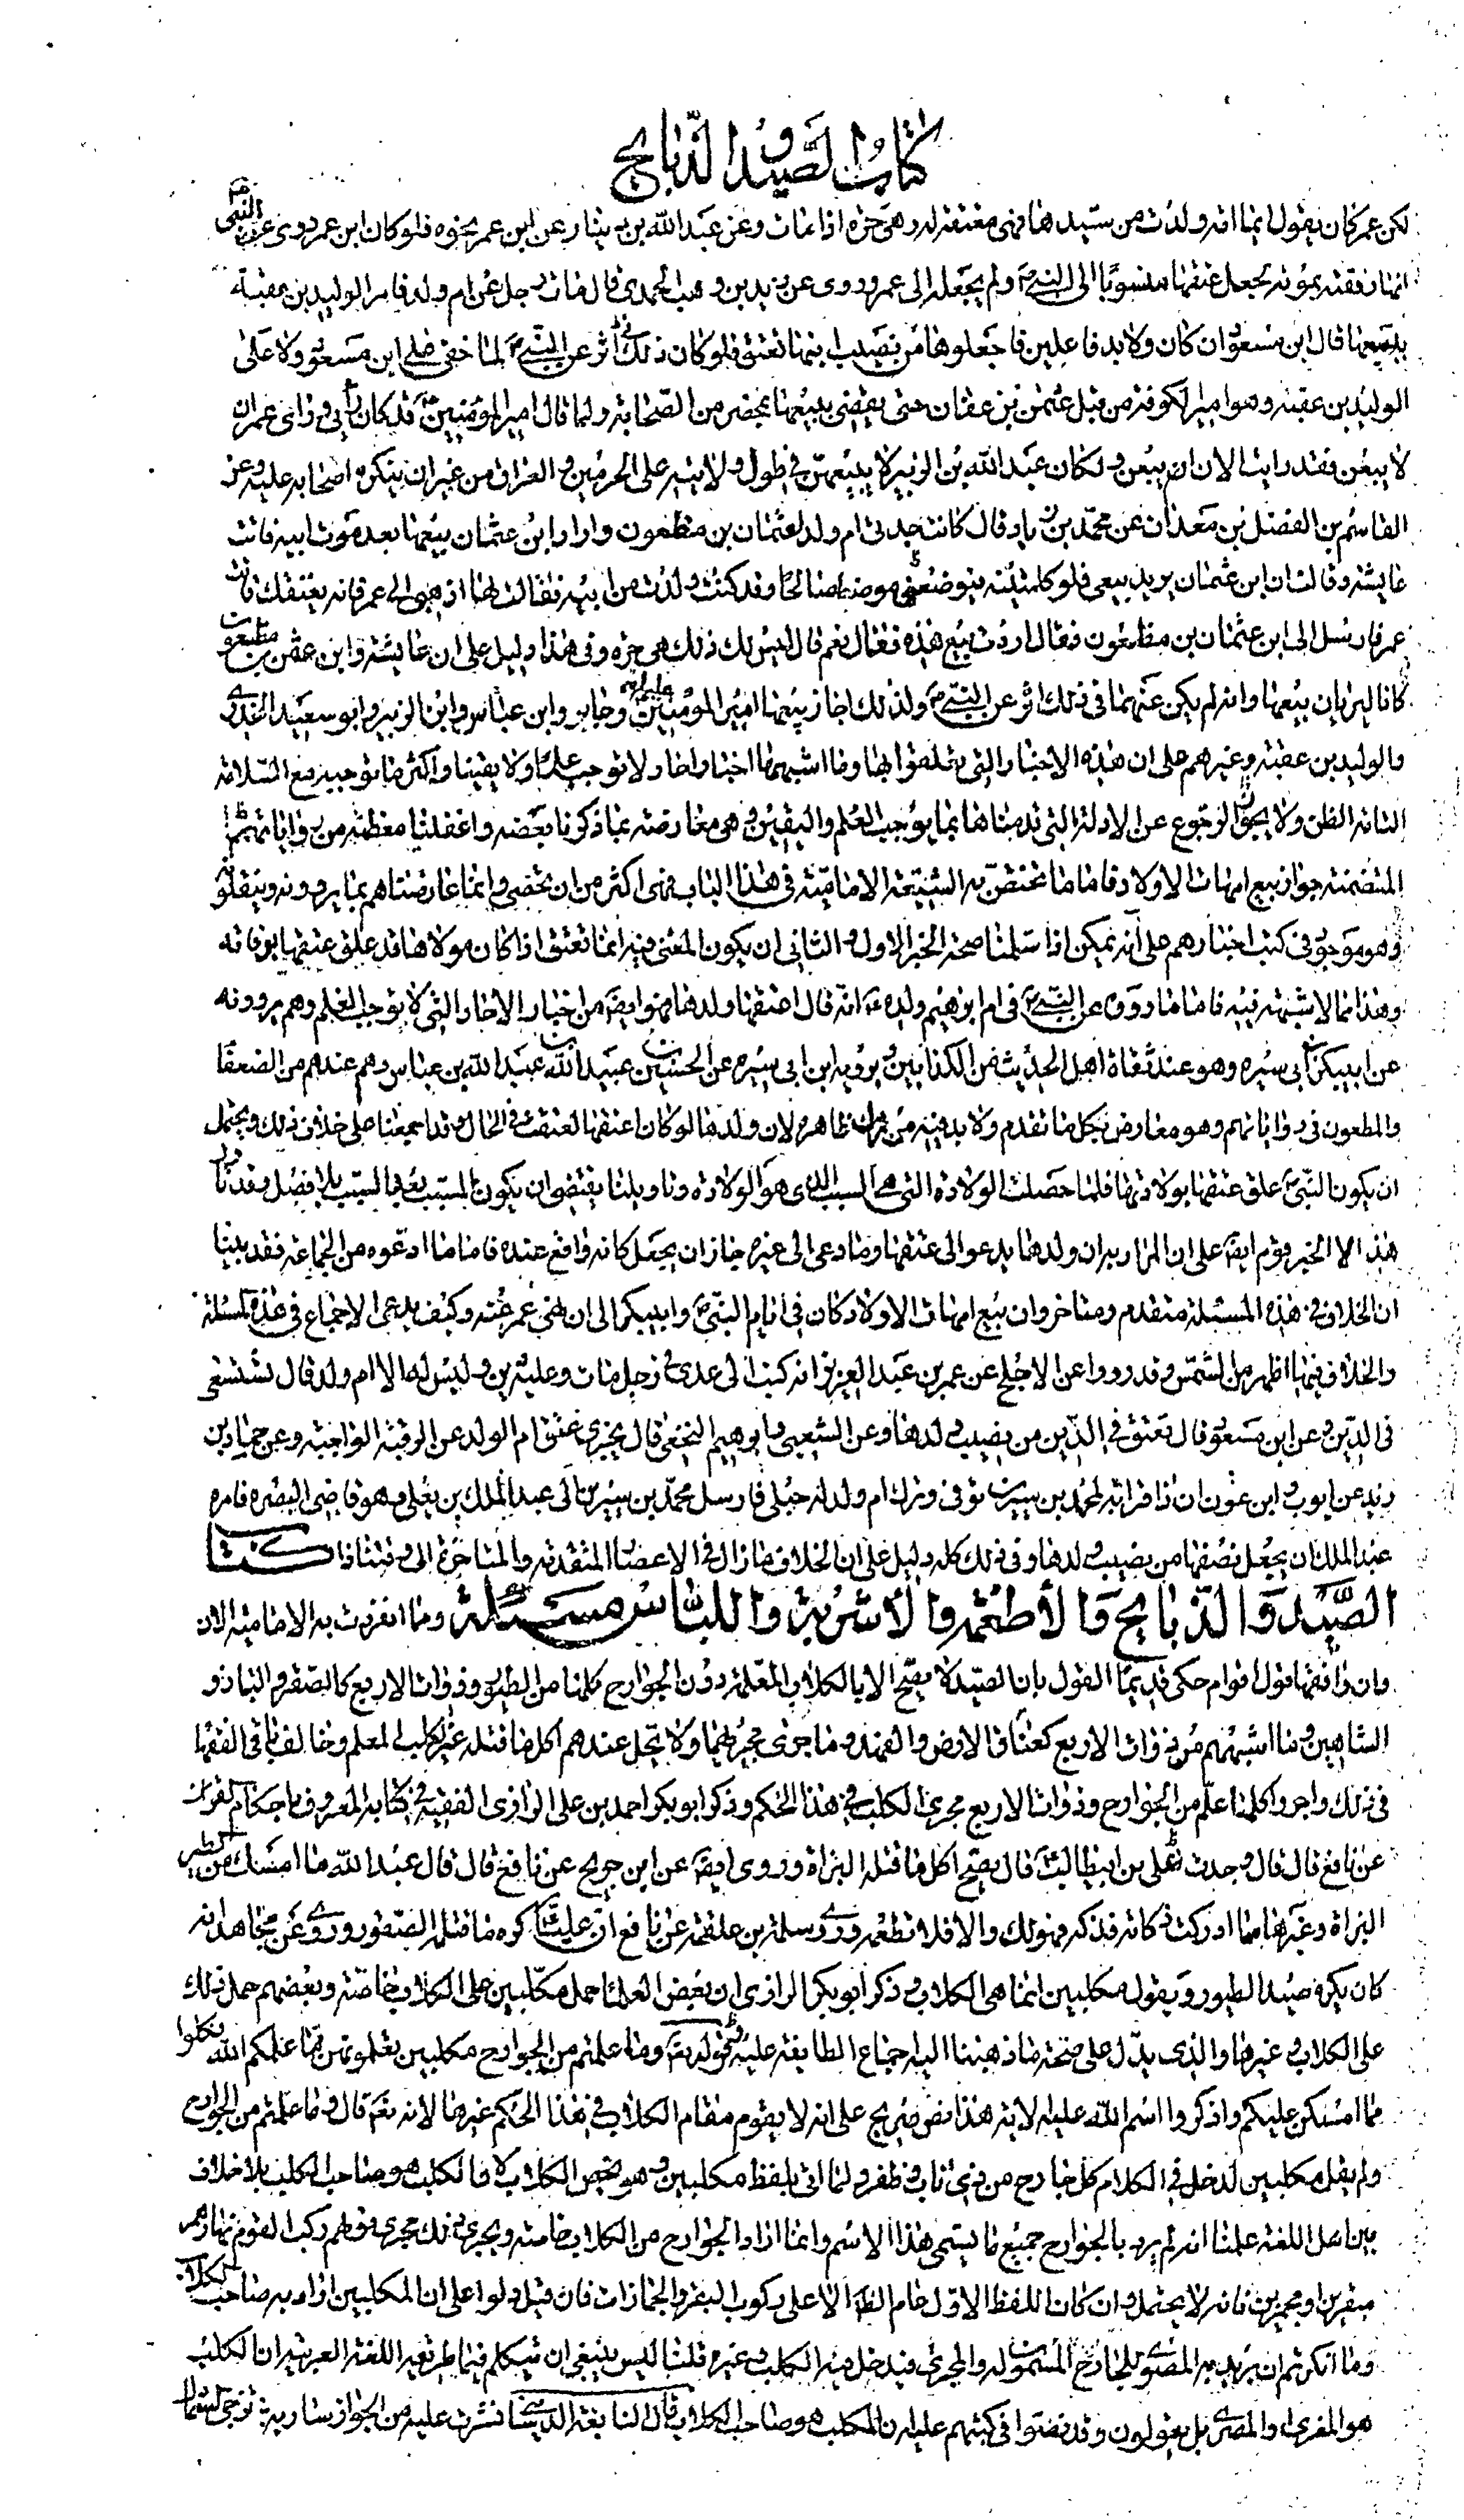 كتاب الصيد و الذبايح
لكن عمر كان يقول ايما امة ولدت من سيدها فهى معتقة له وهى حرة اذا مات وعن عبد الله بن دينار عن ابن عمر نحوه فلو كان ابن عمر روى عن النبى
انها رقيقة بموته لجعل عتقها منسوبا الى النبى ص ولم يجعله الى عمر وروى عن زيد بن وهب الجهنى قال مات رجل عن ام ولد فامر الوليد بن عقبة
ببيعها قال ابن مسعود ان كان ولا بد فاعلين فاجعلوها من نصيب ابنها تعتق فلو كان ذلك اثر عن النبى ص لما خفى على ابن مسعود ولا على
الوليد بن عقبة وهو امير الكوفة من قبل عثمن بن عفان حتى يقضى ببيعها بمحضر من الصحابة ولما قال امير المؤمنين قد كان رأيى ورأى عمر ان
لا يبعن فقد رايت الان ان يبعن ولكان عبد الله بن الزبير لا يبيعهن فى طول ولايته على الحرمين و العراق من غير ان ينكره اصحابه عليه وعن
القاسم بن الفضل بن معدان عن محمد بن زياد قال كانت جدتى ام ولد لعثمان بن مظعون واراد ابن عثمان بيعها بعد موت ابيه فاتت
عايشة وقالت ان ابن عثمان يريد بيعى فلو كلمتيه فيوضعنى موضعا صالحا وقد كنت ولدت من ابيه فقالت لها اذهبى الى عمر فانه يعتقك فاتت
عمر فارسل الى ابن عثمان بن مظعون فقال اردت بيع هذه فقال نعم قال ليس لك ذلك هى حرة وفى هذا دليل على ان عايشة وابن عثمن بن مظعون
كانا يريان بيعها وانه لم يكن عندهما فى ذلك اثر عن النبى ص ولذلك اجاز بيعها امير المؤمنين عليه السلم وجابر وابن عباس وابن الزبير وابو سعيد الخدرى
والوليد بن عقبة وغيرهم على ان هذه الاخبار التى تعلقوا بها وما اشبهها اخبار احاد لا توجب علما ولا يقينا واكثر ما توجبه مع السلامة
التامة الظن ولا يجوز الرجوع عن الادلة التى قدمناها بما يوجب العلم واليقين وهى معارضة بما ذكرنا بعضه واغفلنا معظمه من رواياتهم
المتضمنة جواز بيع امهات الاولاد فاما ما تختص به الشيعة الامامية فى هذا الباب فهى اكثر من ان تحصى وانما عارضناهم بما يروونه وينقلونه
وهو موجود فى كتب اخبارهم على انه يمكن اذا سلمنا صحة الخبر الاول و الثانى ان يكون المعنى فيه انما تعتق اذا كان مولاها قد علق عتقها بوفاته
وهذا مما لا شبهة فيه فاما ما روى عن النبى ص فى ام ابرهيم ولده ع انه قال اعتقها ولدها فهو ايضا من اخبار الاحاد التى لا توجب العلم وهم يروونه
عن ابى بكر بن ابى سبره وهو عند ثقاة اهل الحديث من الكذابين ويرويه ابن ابى سبره عن الحسين بن عبيد الله بن عبيد الله بن عباس وهم عندهم من الضعفا
والمطعون فى رواياتهم وهو معارض بكل ما تقدم ولا بد فيه من ترك ظاهره لان ولدها لو كان اعتقها لعتقت فى الحال وقد اجمعنا على خلاف ذلك ويحتمل
ان يكون النبى ص علق عتقها بولادتها فلما حصلت الولادة التى هى السبب الذى هو الولادة وتاويلنا يقتضى ان يكون المسبب يعقب السبب بلا فصل وقد تاول
هذا الخبر قوم ايضا على ان المراد به ان ولدها يدعو الى عتقها وما دعى الى غيره جاز ان يجعل كانه واقع عنده فاما ما ادعوه من الجماعة فقد بينا
ان الخلاف فى هذه المسئلة متقدم ومتاخر وان بيع امهات الاولاد كان فى ايام النبى ص وابى بكر الى ان نهى عمر عنه وكيف يدعى الاجماع فى هذه المسئلة
والخلاف فيها اظهر من الشمس وقد رووا عن الاجلح عن عمر بن عبد العزيز انه كتب الى عدى فى رجل مات وعليه دين وليس له الا ام ولد قال تستسعى
فى الدين وعن ابن مسعود قال تعتق فى الدين من نصيب ولدها وعن الشعبى وابرهيم النخعى قال يجزى عتق ام الولد عن الرقبة الواجبة وعن حماد بن
زيد عن ايوب وابن عون ان ذا قرابة لمحمد بن سيرين توفى وترك ام ولد له حبلى فارسل محمد بن سيرين الى عبد الملك بن يعلى وهو قاضى البصره فامره
عبد الملك ان يجعل نصفها من نصيب ولدها وفى ذلك كله دليل على ان الخلاف ما زال فى الاعصار المتقدمة والمتاخرة الى وقتنا هذا كتاب
الصيد و الذبايح و الأطعمه و الأشربه و اللباس مسئله ومما انفردت به الامامية الان
وان وافقها قول اقوام حكى قديما القول بان الصيد لا يصح الا بالكلاب المعلمة دون الجوارح كلها من الطيور وذوات الاربع كالصقر و البازى و
الشاهين وما اشبههم من ذوات الاربع كعناق الارض والفهد وما جرى مجريهما ولا يحل عندهم اكل ما قتله غير الكلب المعلم وخالف باقى الفقها
فى ذلك واجروا كلما علم من الجوارح وذوات الاربع مجرى الكلب فى هذا الحكم وذكر ابو بكر احمد بن على الرازى الفقيه فى كتابه المعروف باحكام القران
عن نافع قال قال وجدت لعلى بن ابيطالب ع قال يصح اكل ما قتله البزاة وروى ايضا عن ابن جريج عن نافع قال قال عبد الله ما امسك من الطير
البزاة وغيرها مما ادركت ذكاته فذكه فهو لك والا فلا تطعمه وروى سلمة بن علقمة عن نافع ان عليا ع كره ما قتله الصقور وروى عن مجاهد انه
كان يكره صيد الطيور ويقوله مكلبين انما هى الكلاب وذكر ابو بكر الرازى ان بعض العلما حمل مكلبين على الكلاب خاصة وبعضهم حمل ذلك
على الكلاب وغيرها والذى يدل على صحة ما ذهبنا اليه اجماع الطايفة عليه قوله تعم وما علمتم من الجوارح مكلبين تعلمونهن مما علمكم الله فكلوا
مما امسكن عليكم واذكروا اسم الله عليه الاية هذا نص صريح على انه لا يقوم مقام الكلاب فى هذا الحكم غيرها لانه تعم قال وما علمتم من الجوارح
ولم يقل مكلبين لدخل فى الكلام كل جارح من ذى ناب وظفر ولما اتى بلفظ مكلبين وهو يخص الكلاب لان المكلب هو صاحب الكلب بلا خلاف
بين اهل اللغة علمنا انه لم يرد بالجوارح جميع ما يستحق هذا الاسم وانما اراد الجوارح من الكلاب خاصة ويجرى ذلك مجرى قولهم ركب القوم نهارهم
مبقرين او مجمزين فانه لا يحتمل وان كان اللفظ الاول عام الظا الا على ركوب البقر والجمازات فان قيل دلوا على ان المكلبين اراد به صاحب الكلاب
وما انكرتم ان يريد به المضرى للجارح الممرن له والمجرى فيدخل فيه الكلب وغيره قلنا ليس ينبغى ان يتكلم فيما طريقه اللغة العربية ان الكلب
هو المغرى والمضرى بل يقولون وقد نصوا فى كتبهم عليه ان المكلب هو صاحب الكلاب قال النابغة الذبيانى سرت عليه من الجوزا سارية تزجى الشمال